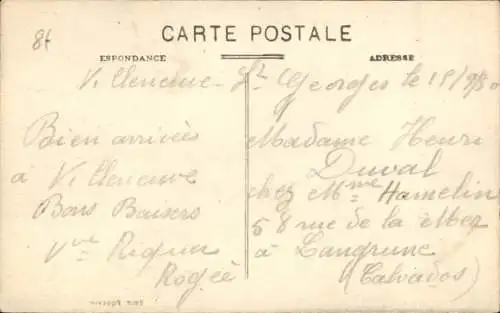 8f
CARTE POSTALE
ESPONDANCE
ADRESSE
Villeneuve-St Georges le 15/9/30
Bien arrivés
à Villeneuve
Bons Baisers
Vve Riquer
Rogée
Madame Henri
Duval
chez Mme Hamelin
58 rue de la Mer
à Langrune
(Calvados)